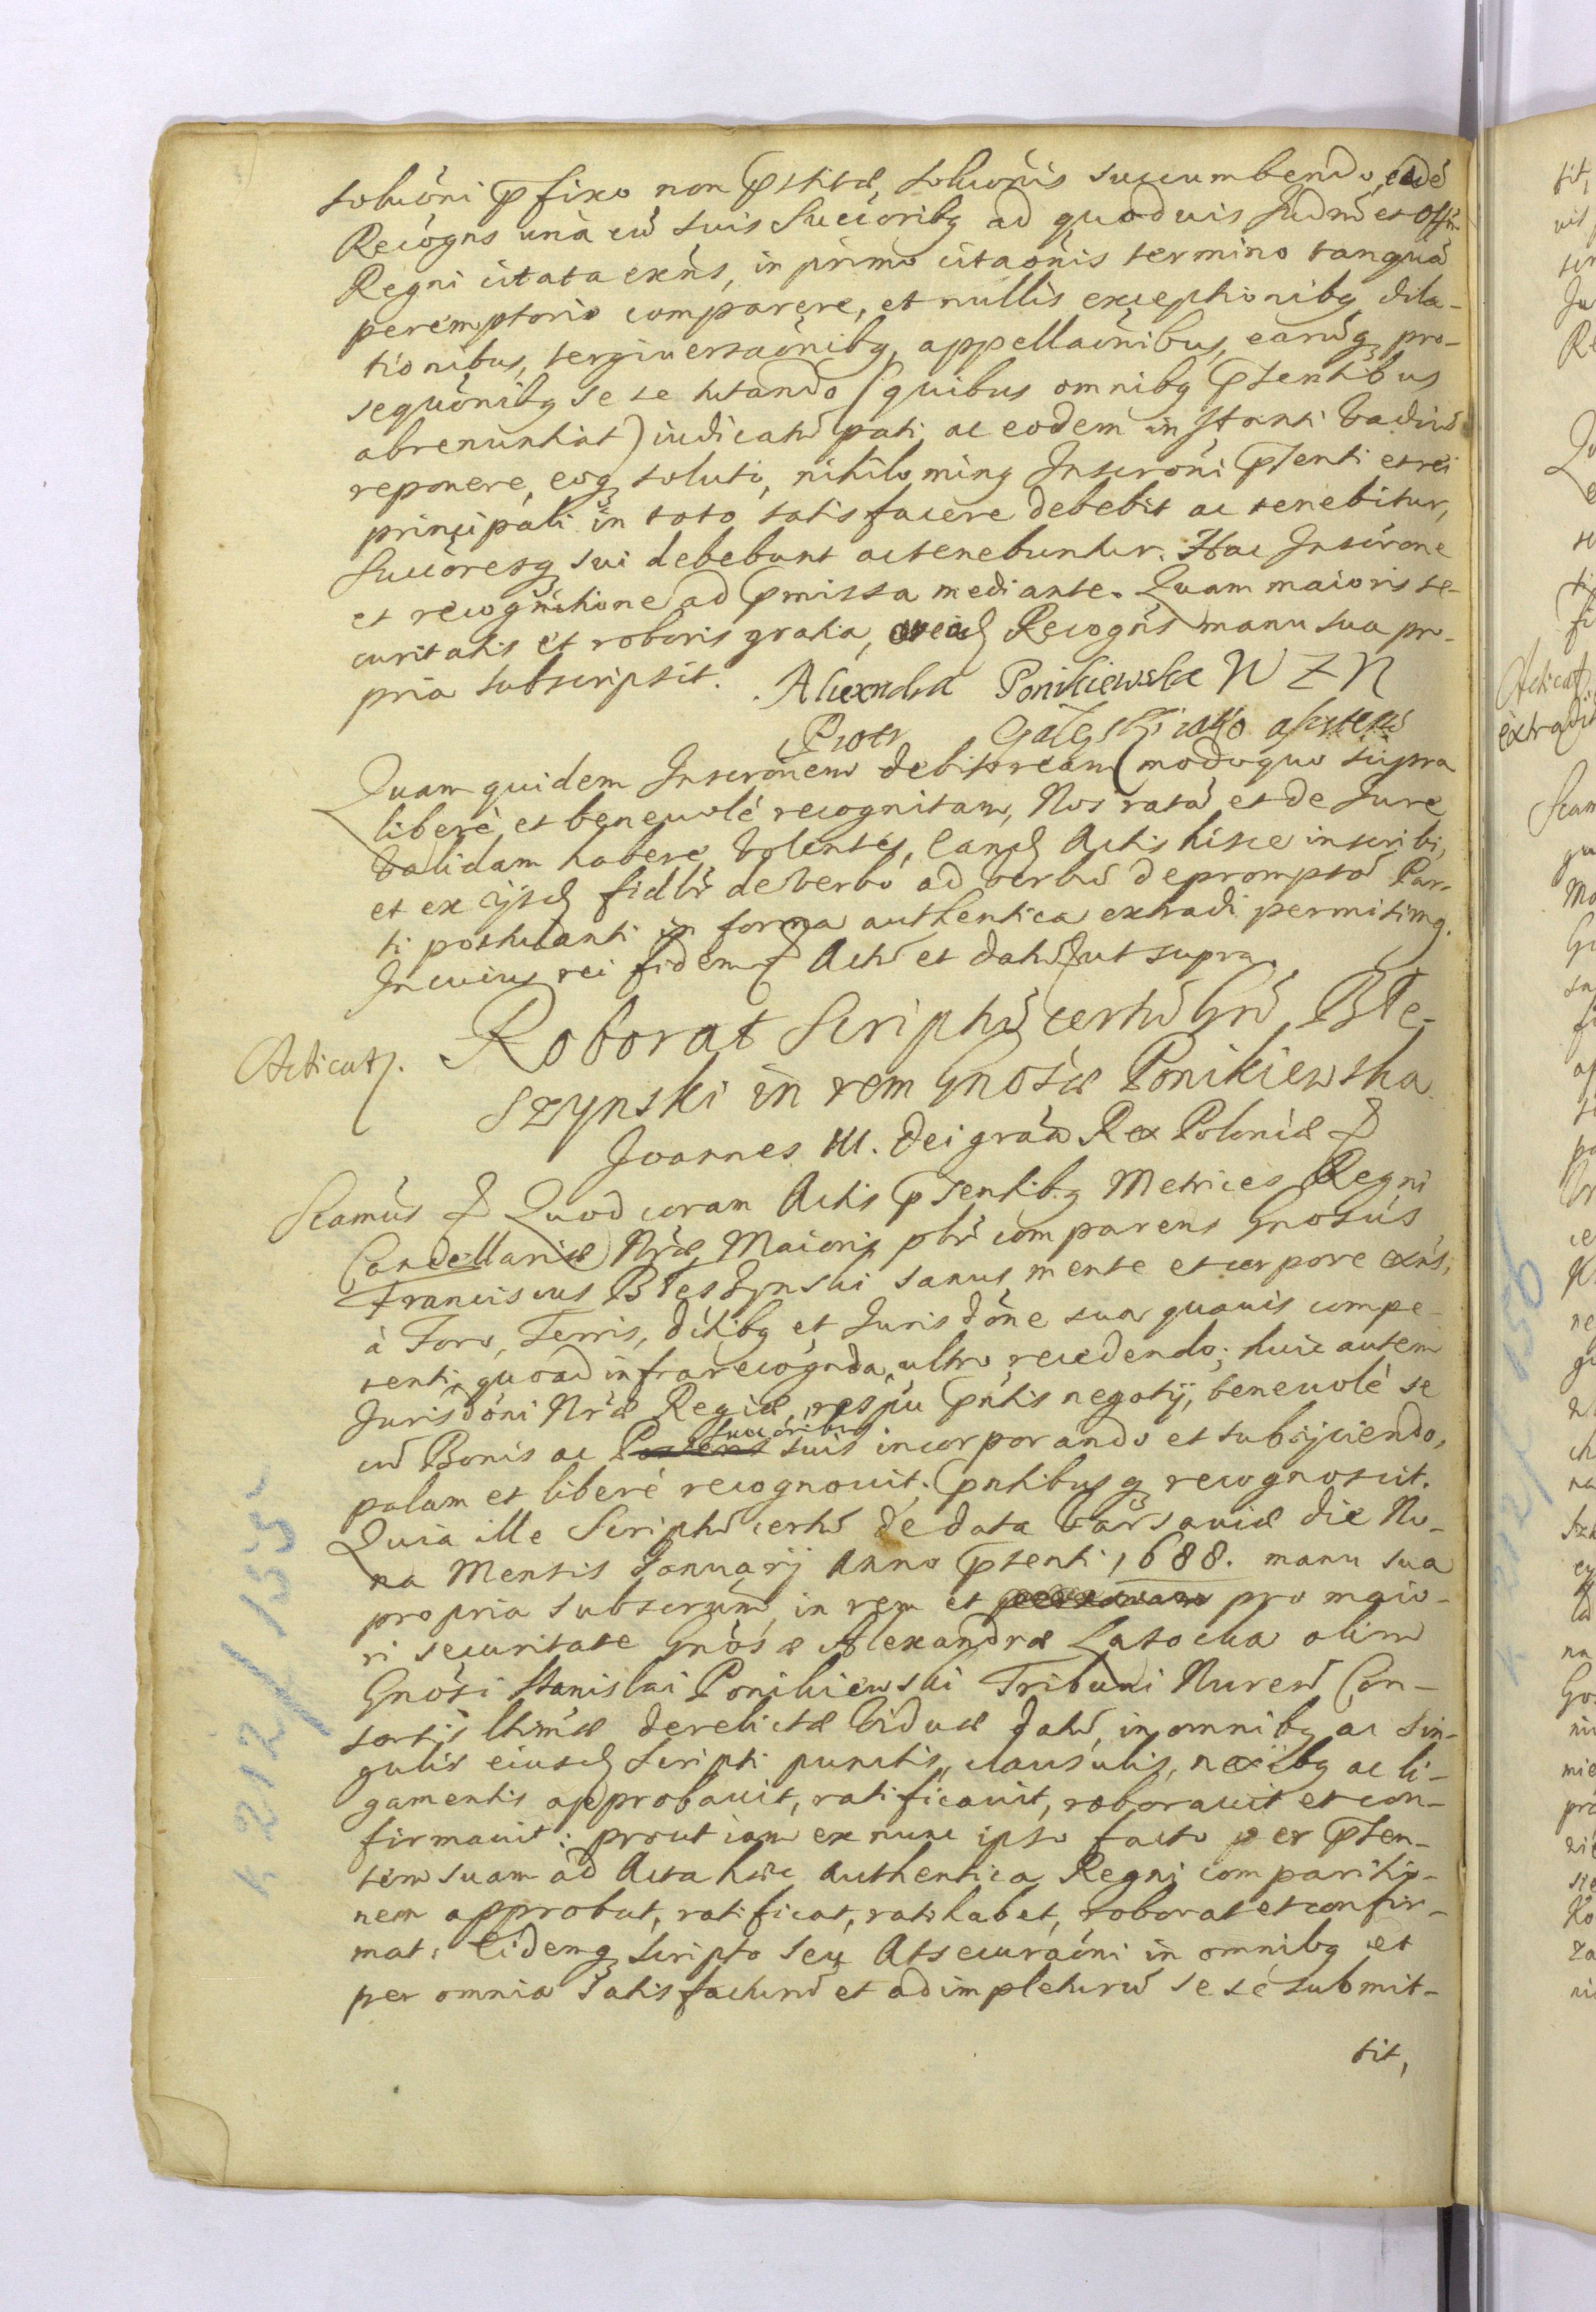 solucõni p̃fixo non p̃stitæ, solucõnis succumbendo, eadẽ
Recõgns unà cũ suis Succõribq ad quoduis Judm̃ et Offm̃
Regni citata exñs, in primo citaõnis termino tanquã
peremptorio comparere, et nullis exceptionibq dila-
tionibus, tergiuersaõnibq, appellaõnibus, earũq pro-
sequõnibq se se tutando (quibus omnibq p̃sentibus
abrenuntiat) iudicatũ pati, ac eodem instanti Vadiũ
reponere, eoq soluto, nihilo minq Inscrõni p̃senti et rei
principali in toto satisfacere debebit ac tenebitur,
Succõresq sui debebunt ac tenebuntur. Hac Inscrõne
et recognitione ad p̃missa mediante. Quam maioris se-
curitatis et roboris gratia, Recogñs manu sua pro-
pria subscripsit. Alexandra Ponikiewska W Z N
Piotr Gałęski iako asistens
Quam quidem Inscrõnem debitoream modo quo supra
liberè et beneuolè recognitam, Nos ratã et de Jure
Validam habere Volentes, Eand Actis hisce inscribi,
et ex ijsd fidlr̃ de verbo ad verbũ depromptã Par-
ti postulanti in forma authentica extradi permisimq.
In cuius rei fidem &. Actũ et datũ ut supra.
Acticat.
Roborat Scriptũ certũ Gñs Błe-
szynski in rem Gnosæ Ponikiewska
Joannes III. Dei grãa Rex Poloniæ &
Scamús & Quod coram Actis p̃sentibq Metrices Regni
Cancellariæ Nr̃æ Maioris plr̃ comparens Gnosús
Franciscus Błeszynski sanus mente et corpore exñs,
à Foro, Terris, dítibq et Jurisdõne sua quauis compe-
tenti, quoad infra recognda, ultro recedendo; huic autem
Jurisdõni Nr̃æ Regiæ, respu p̃ntis negotij, beneuolè se
cũ Bonis ac succõribq suis incorporando et subijciendo,
palam et liberè recognouit; p̃ntibusq recognoscit.
Quia ille Scriptũ certũ de data Varsauiæ die No-
na Mensis Januarij Anno p̃senti 1688. manu sua
propria subscrum̃, in rem et pro maio-
ri securitate Gnõsæ Alexandræ Lasocka olim
Gnõsi Stanislai Ponikiewski Tribuni Nuren̄ Con-
sortis ltim̃æ derelictæ Viduæ datũ, in omnibq ac sin-
gulis eiusd scripti punctis, clausulis, nexibq ac li-
gamentis approbauit, ratificauit, roborauit et con-
firmauit: prout iam ex nunc ipso facto per p̃sen-
tem suam ad Acta hæc authentica Regni comparitio-
nem approbat, ratificat, ratihabet, roborat et confir-
mat: Eidemq scripto seu Assecuraõni in omnibq et
per omnia satisfacturũ et adimpleturũ se se submit-
tit,
k 212/155